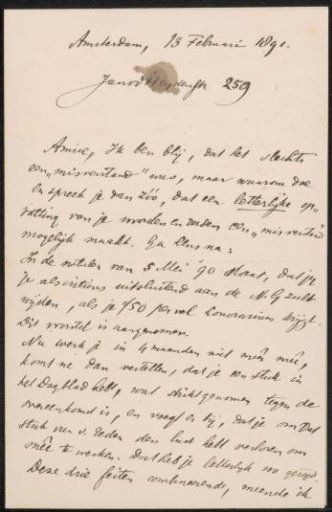 Amsterdam, 13 Februari 1891.
Jan v d Heydenstr 259
Amice, Ik ben blij, dat het slechts
een „misverstand" was, maar waarom doe
en spreek je dan zóó, dat een letterlijke op-
vatting van je woorden en daden een „misverstand"
mogelijk maakt. Ga eens na:
In de notulen van 5 Mei '90 staat, dat jij
je uitsluitend aan de N.G. zult
wijden, als je f50 per vel honorarium krijgt.
Dit voorstel is aangenomen.
Nu werk je in 4 maanden niet méé,
komt me dan vertellen, dat je een stuk in
het Dagblad hebt, wat strikt genomen tegen de
overeenkomst is, en voegt er bij, dat je om dat
stuk van v. Eeden den lust hebt verloren om
méé te werken. Dat heb je letterlijk zoo gezegd.
Deze drie feiten combineerende, meende ik